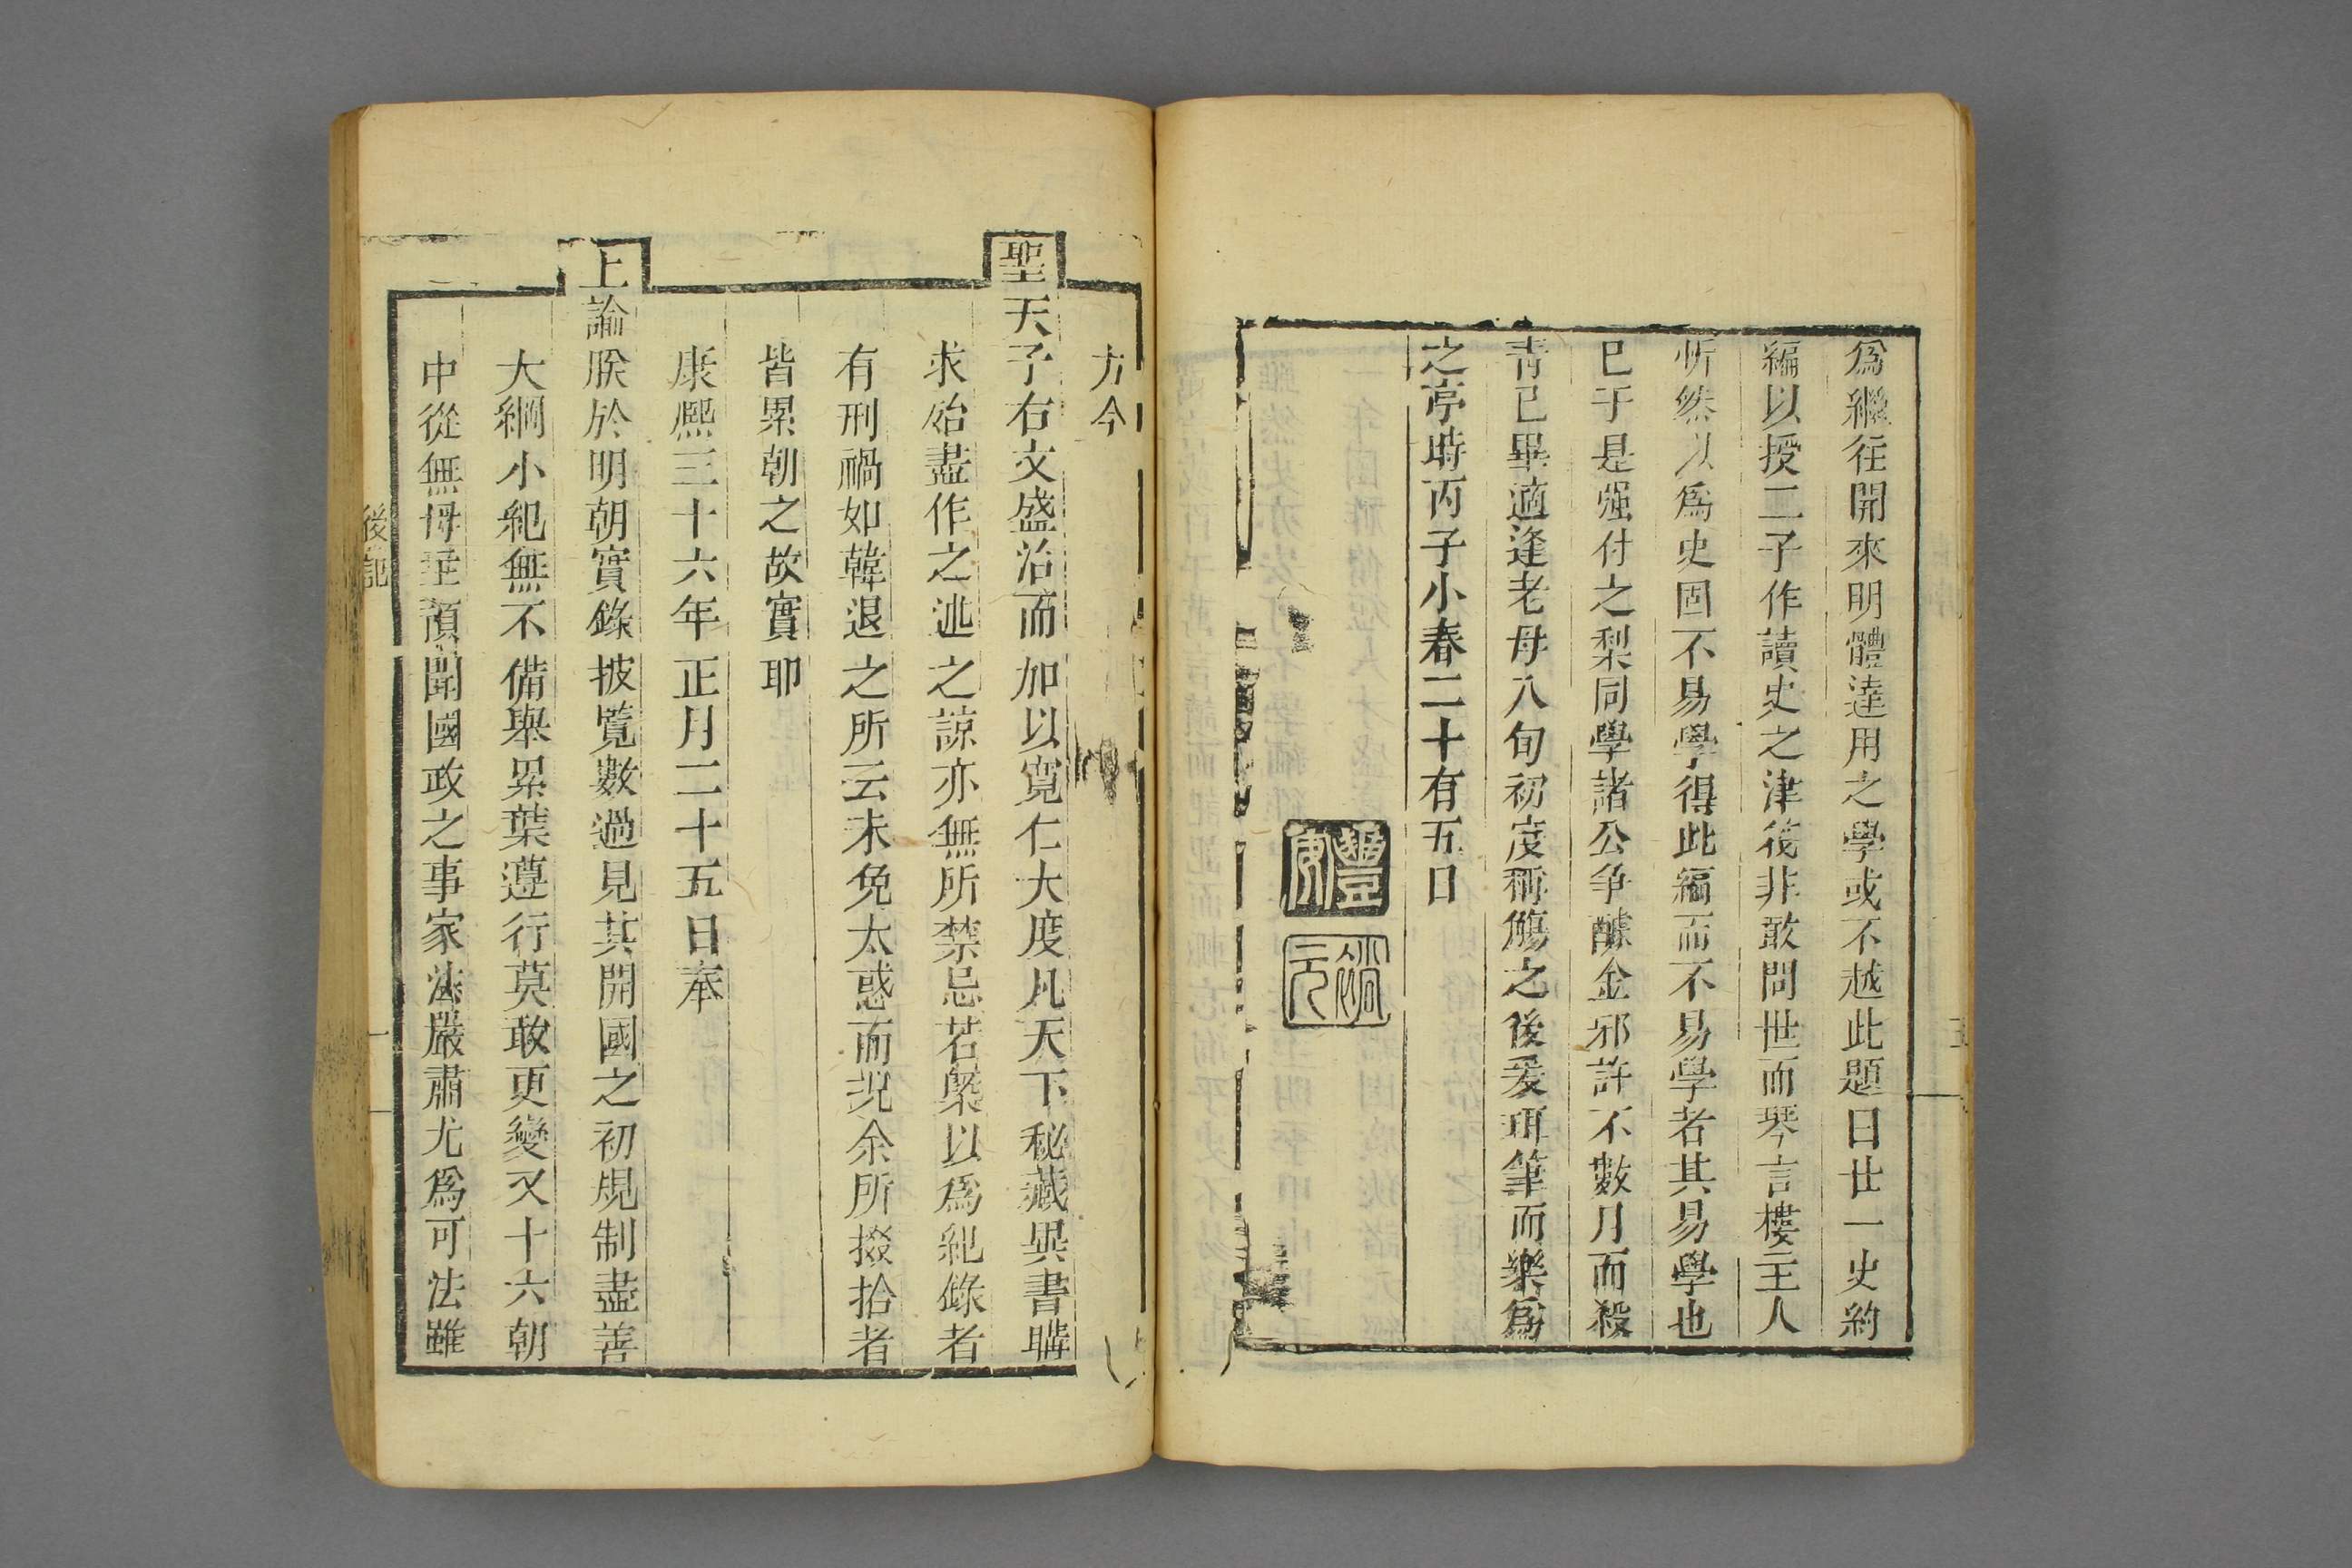 爲繼徃開來明體逹用之學或不越此題曰廿一史約
編以授二子作讀史之津筏非敢問世而琴言樓主人
忻然以爲史固不易學得此編而不易學者其易學也
已于是强付之梨同學諸公争醵金邪許不數月而殺
靑已畢適逢老母八旬初度稱觴之後爰珥筆而樂爲
之序時丙子小春二十有五日
方今
聖天子右文盛治而加以寬仁大度凡天下秘藏異書購
求殆盡作之述之諒亦無所禁忌若槩以爲紀錄者
有刑禍如韓退之所云未免太惑而况余所掇拾者
皆累朝之故實耶
康熙三十六年正月二十五日奉
上諭朕於明朝實錄披覽數過見其開國之初規制盡善
大綱小紀無不備舉累葉遵行莫敢更變又十六朝
中從無母后預聞國政之事家法嚴肅尤爲可法雖
後記